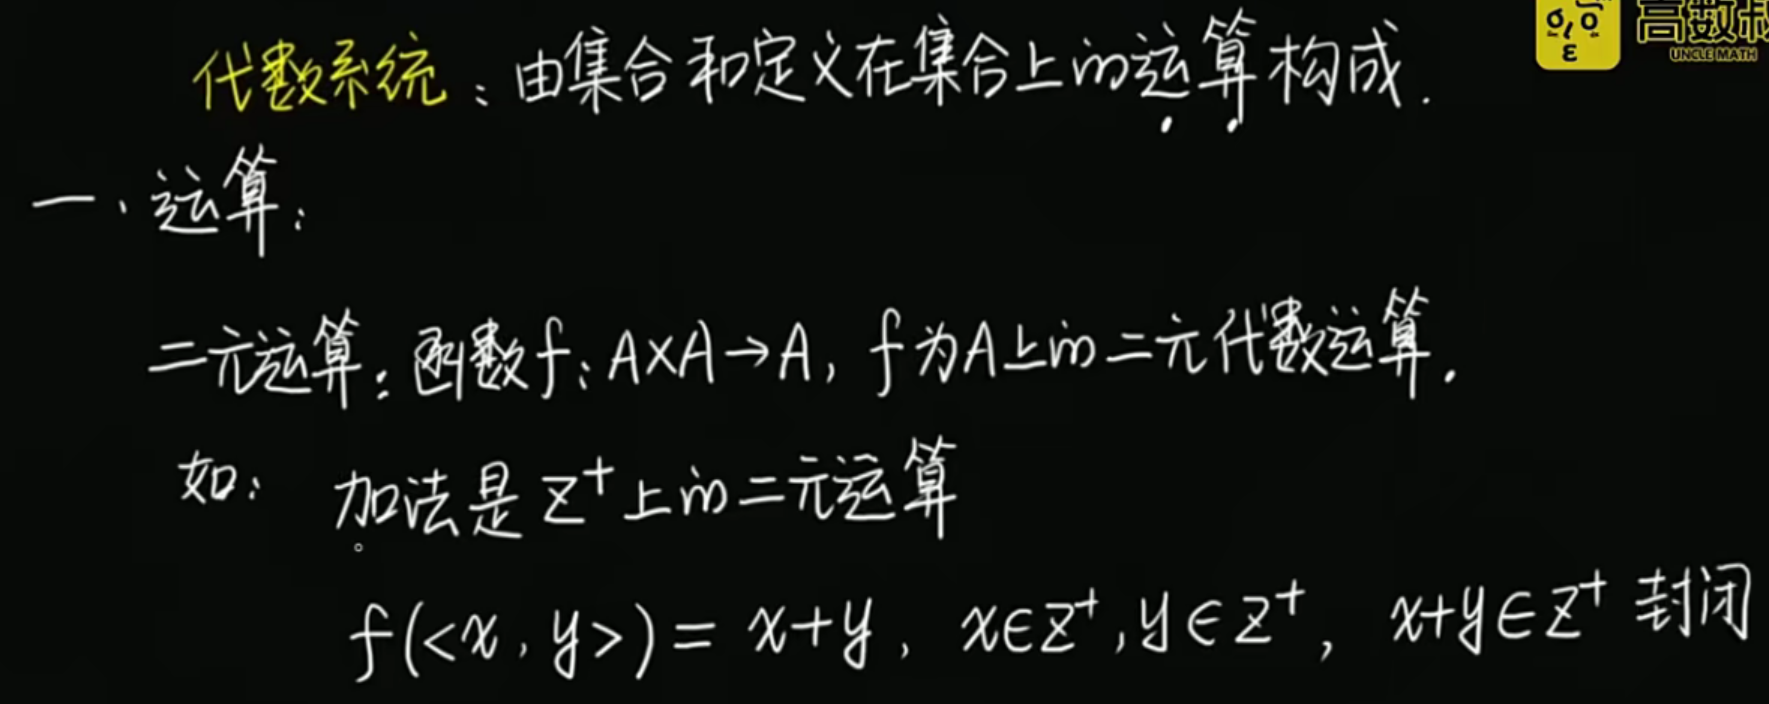 高数叔
UNCLE MATH
代数系统：由集合和定义在集合上的运算构成.
一、运算：
二元运算：函数f：A×A→A，f为A上的二元代数运算.
如：加法是Z⁺上的二元运算
f(<x,y>)=x+y，x∈Z⁺,y∈Z⁺，x+y∈Z⁺ 封闭